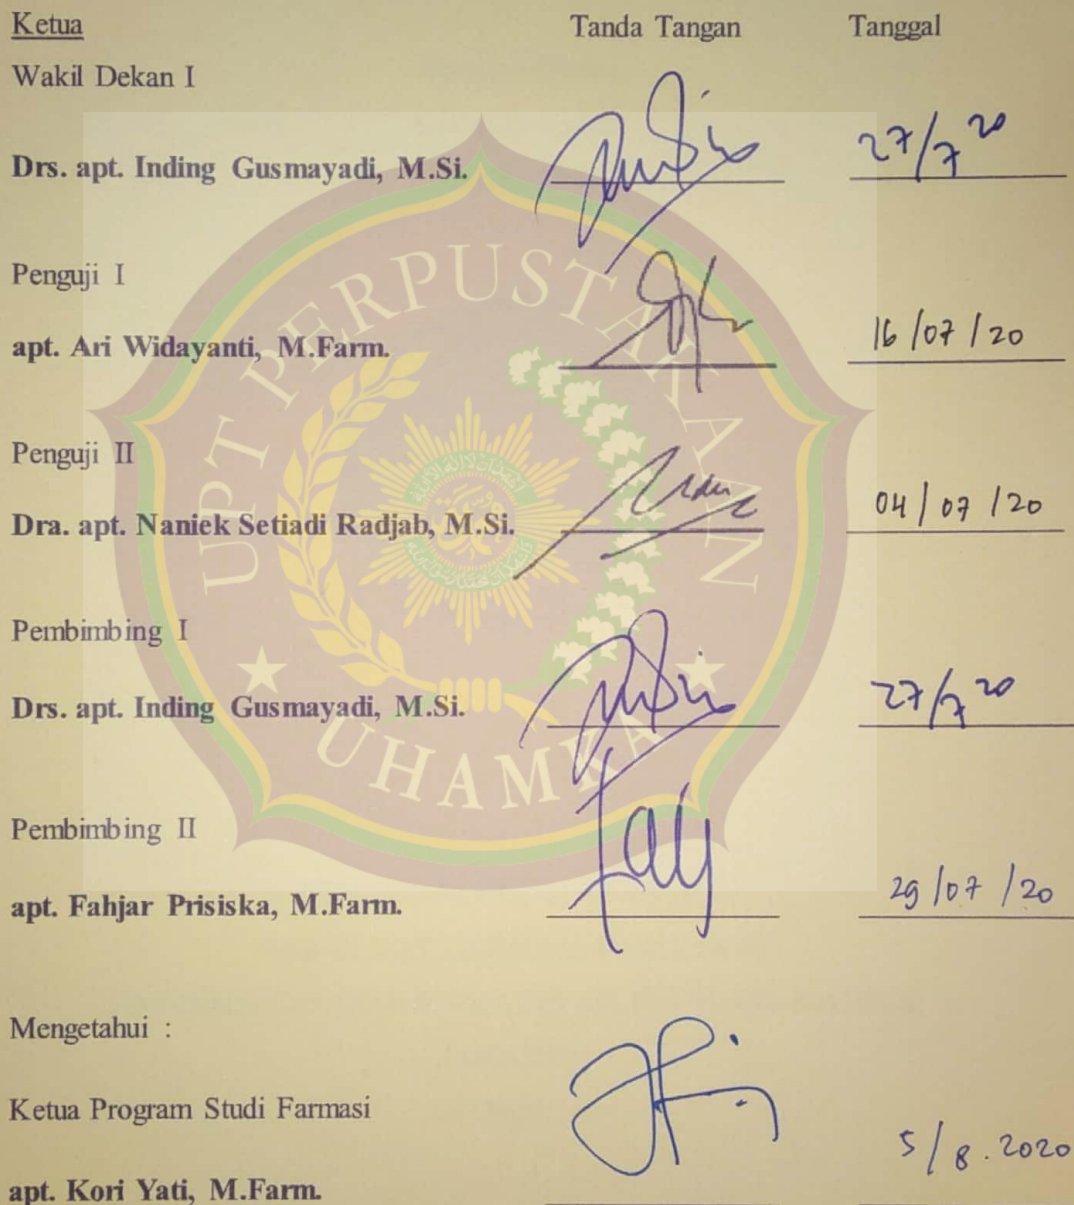 Ketua Tanda Tangan Tanggal
Wakil Dekan I
Drs. apt. Inding Gusmayadi, M.Si. 27/7 20
Penguji I
apt. Ari Widayanti, M.Farm. 16/07/20
Penguji II
Dra. apt. Naniek Setiadi Radjab, M.Si. 04/07/20
Pembimbing I
Drs. apt. Inding Gusmayadi, M.Si. 27/7 20
Pembimbing II
apt. Fahjar Prisiska, M.Farm. 29/07/20
Mengetahui :
Ketua Program Studi Farmasi
5/8.2020
apt. Kori Yati, M.Farm.
UPT PERPUSTAKAAN
UHAMKA